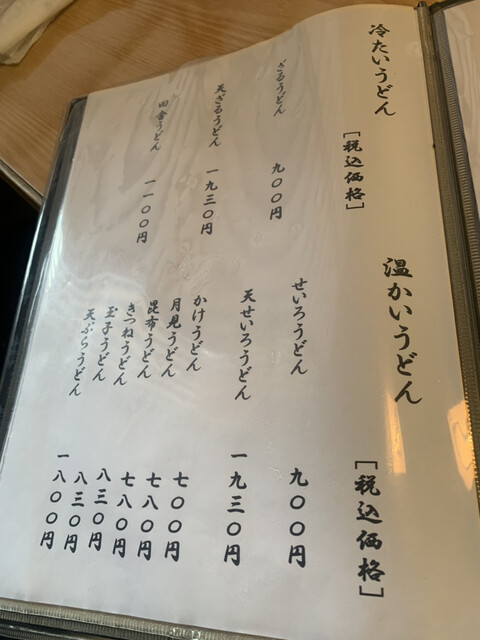 冷たいうどん
[税込価格]
ざるうどん 九〇〇円
天ざるうどん 一九三〇円
田舎うどん 一一〇〇円
温かいうどん
[税込価格]
せいろうどん 九〇〇円
天せいろうどん 一九三〇円
かけうどん 七〇〇円
月見うどん 七八〇円
昆布うどん 七八〇円
きつねうどん 八三〇円
玉子うどん 八三〇円
天ぷらうどん 一八〇〇円